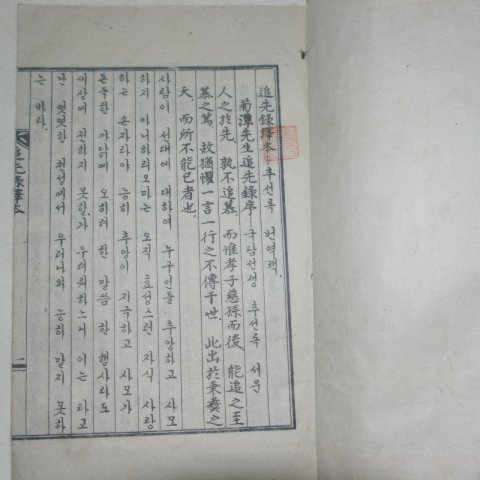 追先錄譯本 추선록 번역책
菊潭先生追先錄序 국담선생 추선록 서문
人之於先 孰不追慕 而惟孝子慈孫而後 能追之至
慕之篤 故猶懼一言一行之不傳于世 此出於秉彝之
天 而所不能已者也
사람이 선대에 대하여 누구인들 추앙하고 사모
하지 아니하리오마는 오직 효성스런 자식 사랑
하는 손자라야 능히 추앙이 지극하고 사모가
돈독한 까닭에 오히려 한 말씀 한 행사라도
세상에 전하지 못할가 두려워하느니 이는 타고
난 떳떳한 천성에서 우러나와 능히 말지 못하
는 바다
追先錄譯本
一